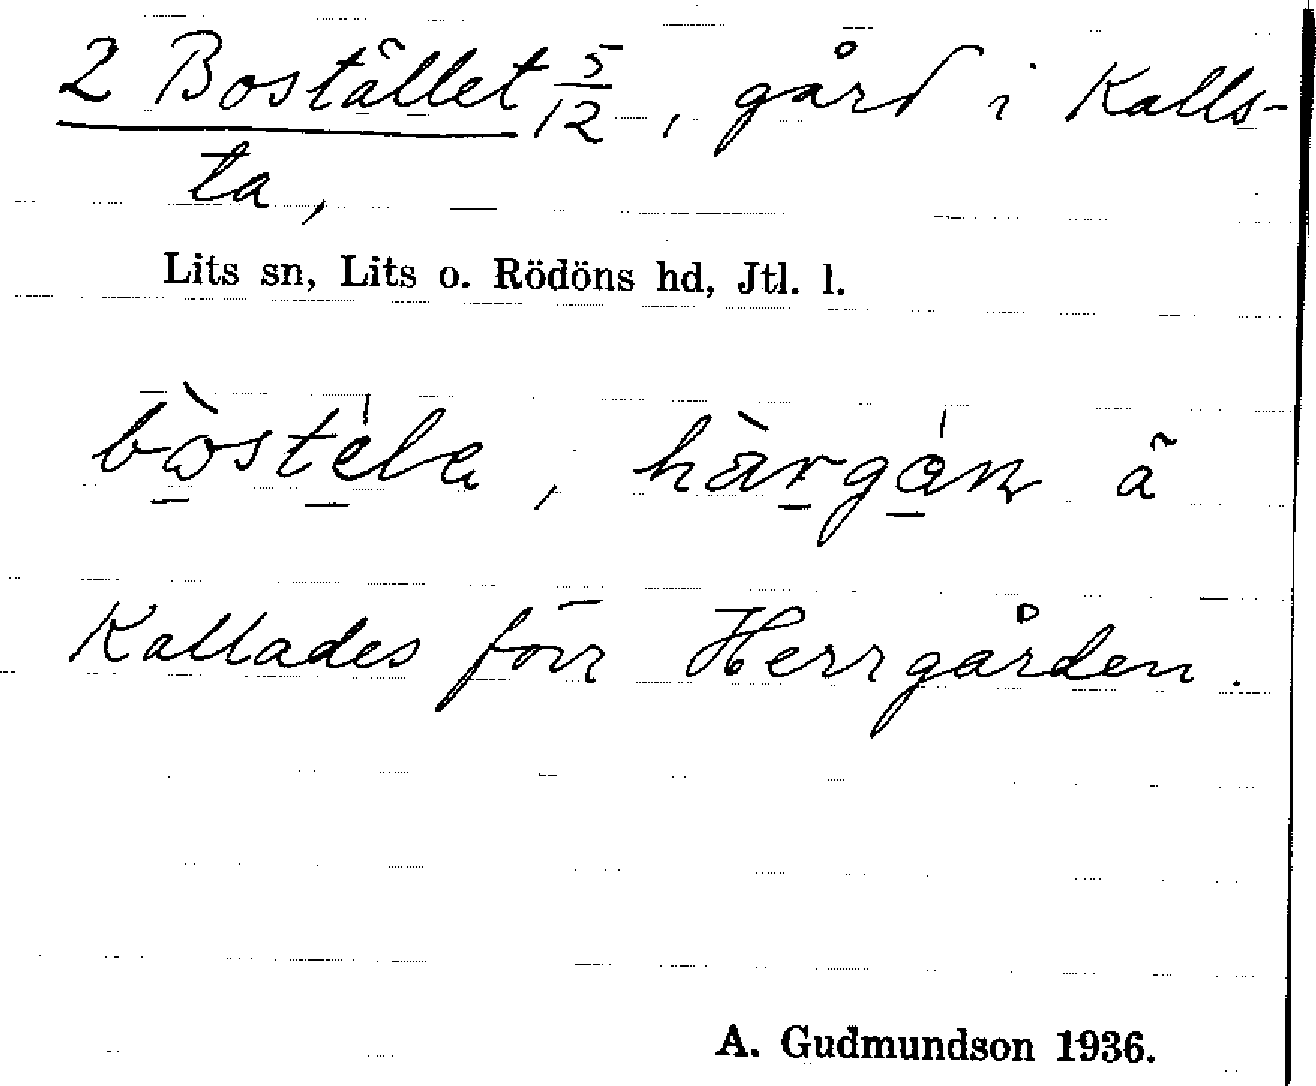 2 Bostället 5/12, gård i Kalls-
ta,
Lits sn, Lits o. Rödöns hd, Jtl. l.
å
Kallades förr Herrgården.
A. Gudmundson 1936.